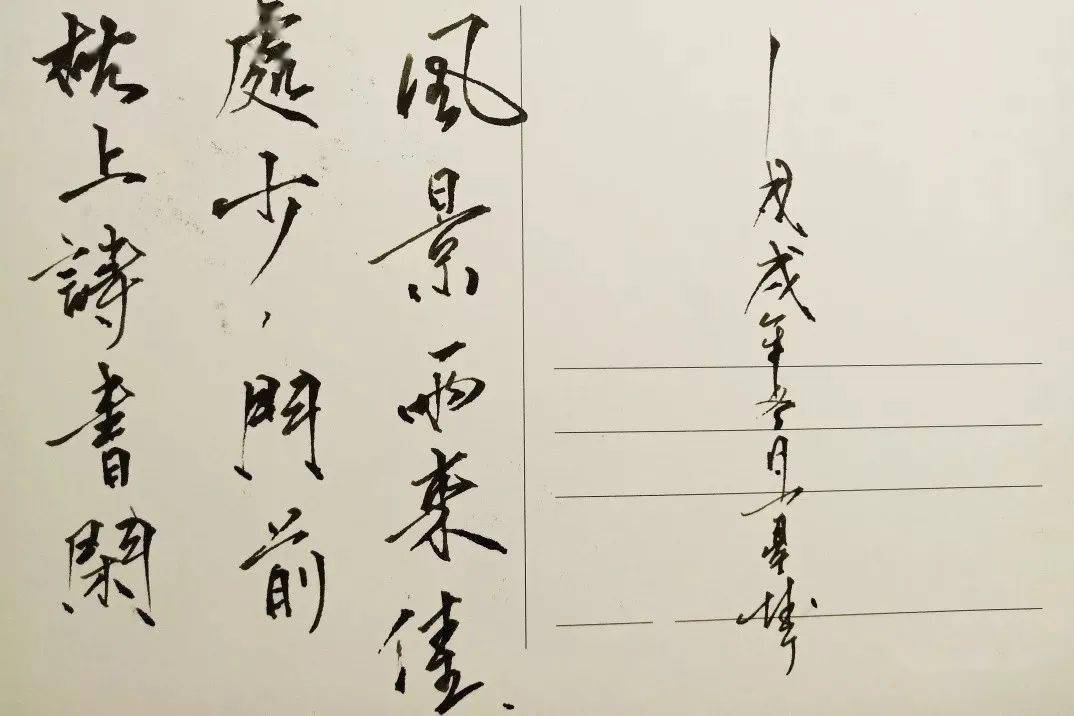 枕上詩書閑
處少，門前
風景雨來佳.
戊戌年月上